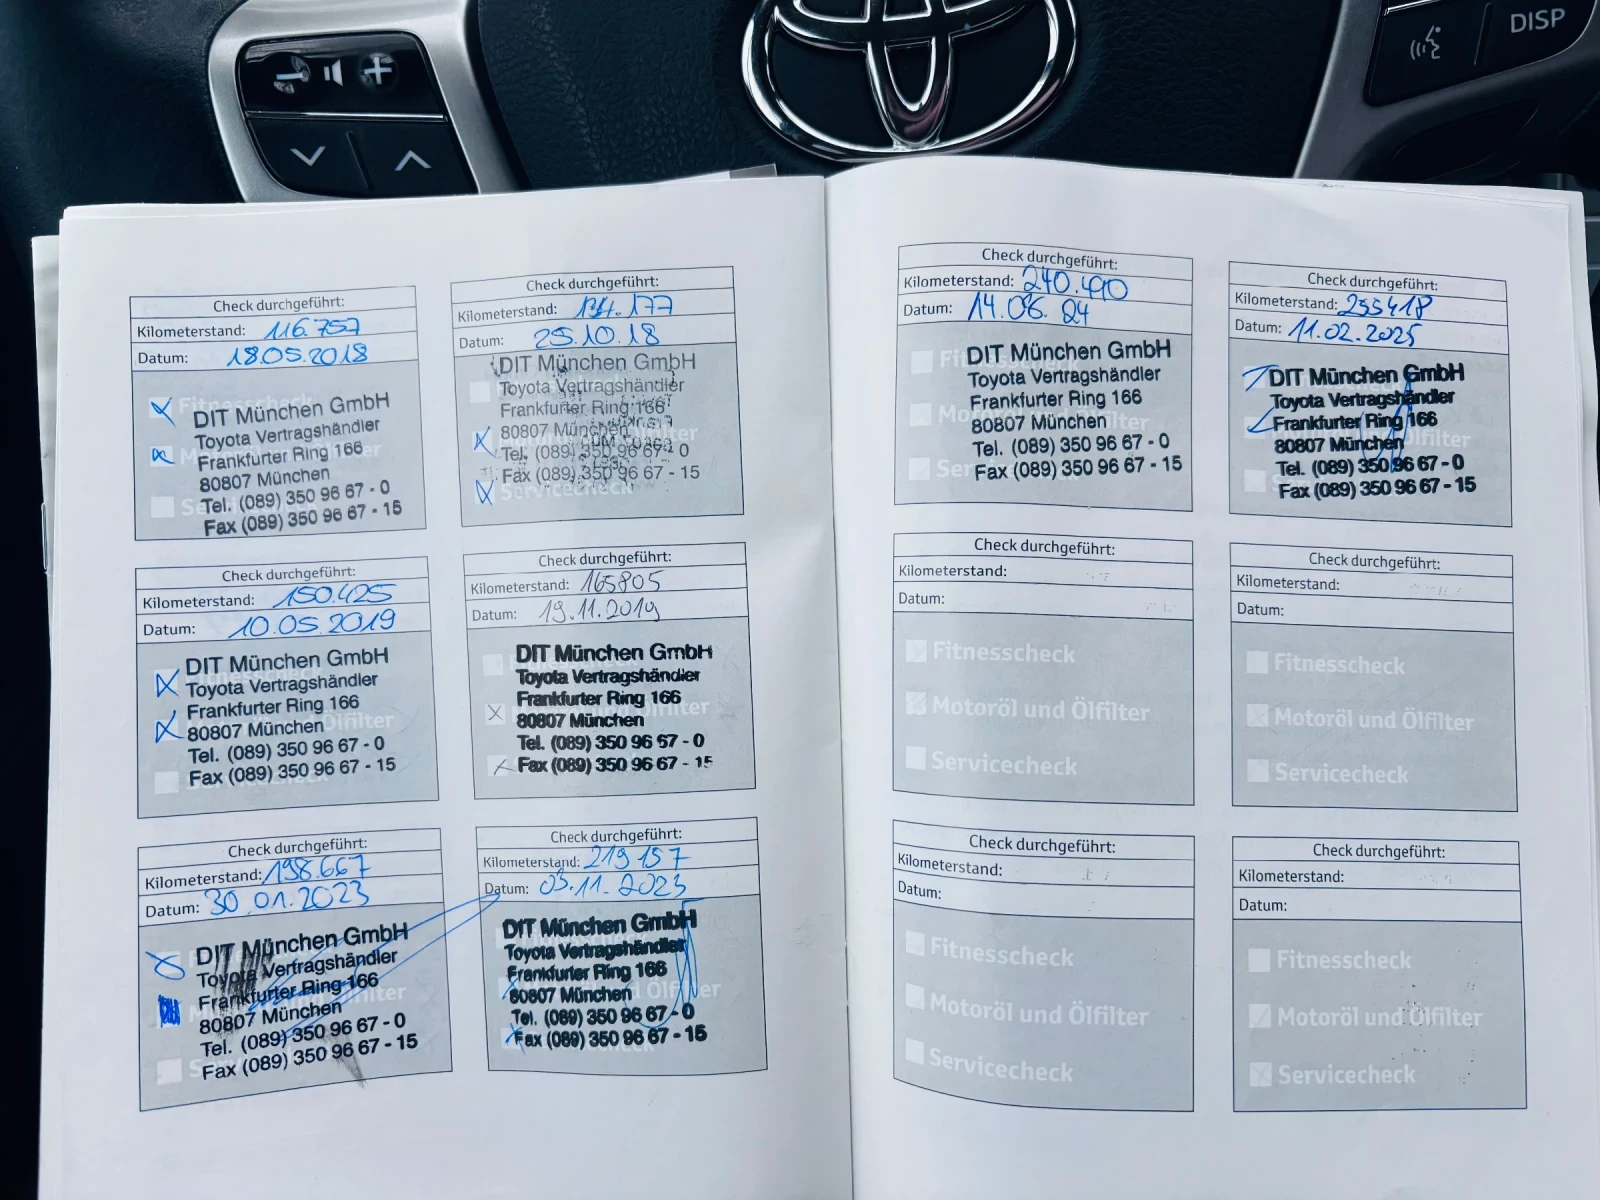 DISP
Check durchgeführt:
Kilometerstand: 116.757
Datum: 18.05.2018
Fitnesscheck
DIT München GmbH
Toyota Vertragshändler
Frankfurter Ring 166
80807 München
Tel. (089) 350 96 67 - 0
Fax (089) 350 96 67 - 15
Check durchgeführt:
Kilometerstand: 134.177
Datum: 25.10.18
DIT München GmbH
Toyota Vertragshändler
Frankfurter Ring 166
80807 München
Tel. (089) 350 96 67 - 0
Fax (089) 350 96 67 - 15
Servicecheck
Check durchgeführt:
Kilometerstand: 150.425
Datum: 10.05.2019
DIT München GmbH
Toyota Vertragshändler
Frankfurter Ring 166
80807 München
Tel. (089) 350 96 67 - 0
Fax (089) 350 96 67 - 15
Check durchgeführt:
Kilometerstand: 165805
Datum: 19.11.2019
DIT München GmbH
Toyota Vertragshändler
Frankfurter Ring 166
80807 München
Tel. (089) 350 96 67 - 0
Fax (089) 350 96 67 - 15
Check durchgeführt:
Kilometerstand: 198.667
Datum: 30.01.2023
DIT München GmbH
Toyota Vertragshändler
Frankfurter Ring 166
80807 München
Tel. (089) 350 96 67 - 0
Fax (089) 350 96 67 - 15
Check durchgeführt:
Kilometerstand: 219157
Datum: 03.11.2023
DIT München GmbH
Toyota Vertragshändler
Frankfurter Ring 166
80807 München
Tel. (089) 350 96 67 - 0
Fax (089) 350 96 67 - 15
Check durchgeführt:
Kilometerstand: 240.490
Datum: 14.06.24
DIT München GmbH
Toyota Vertragshändler
Frankfurter Ring 166
80807 München
Tel. (089) 350 96 67 - 0
Fax (089) 350 96 67 - 15
Check durchgeführt:
Kilometerstand: 255418
Datum: 11.02.2025
DIT München GmbH
Toyota Vertragshändler
Frankfurter Ring 166
80807 München
Tel. (089) 350 96 67 - 0
Fax (089) 350 96 67 - 15
Check durchgeführt:
Kilometerstand:
Datum:
Fitnesscheck
Motoröl und Ölfilter
Servicecheck
Check durchgeführt:
Kilometerstand:
Datum:
Fitnesscheck
Motoröl und Ölfilter
Servicecheck
Check durchgeführt:
Kilometerstand:
Datum:
Fitnesscheck
Motoröl und Ölfilter
Servicecheck
Check durchgeführt:
Kilometerstand:
Datum:
Fitnesscheck
Motoröl und Ölfilter
Servicecheck